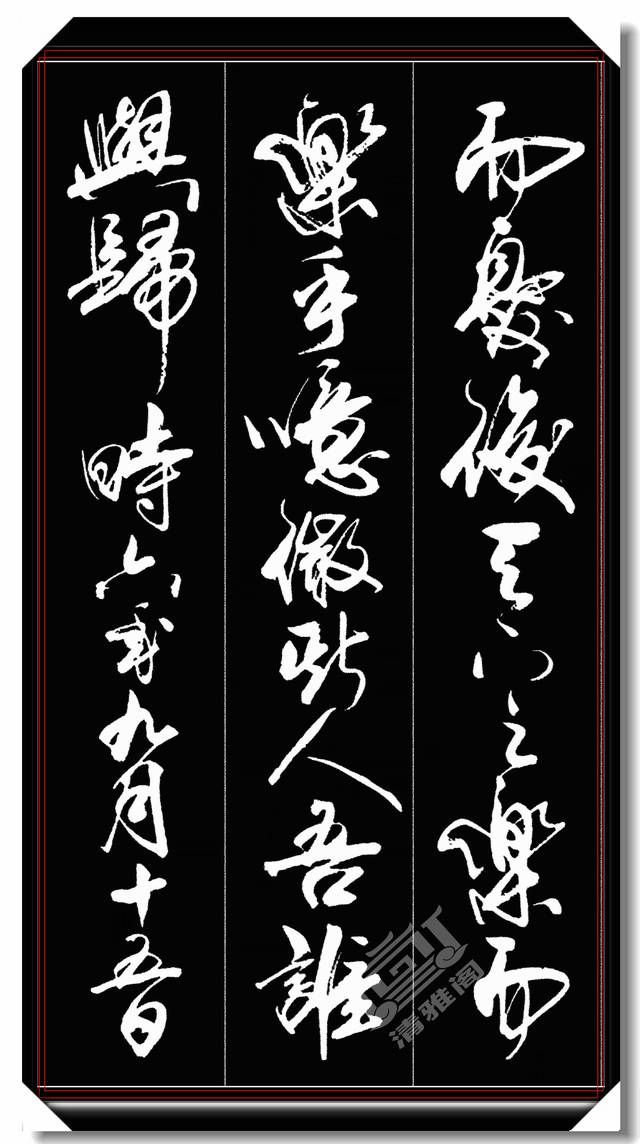 而憂後天下之樂而
樂乎噫微斯人吾誰
與歸時六年九月十五日
清雅阁